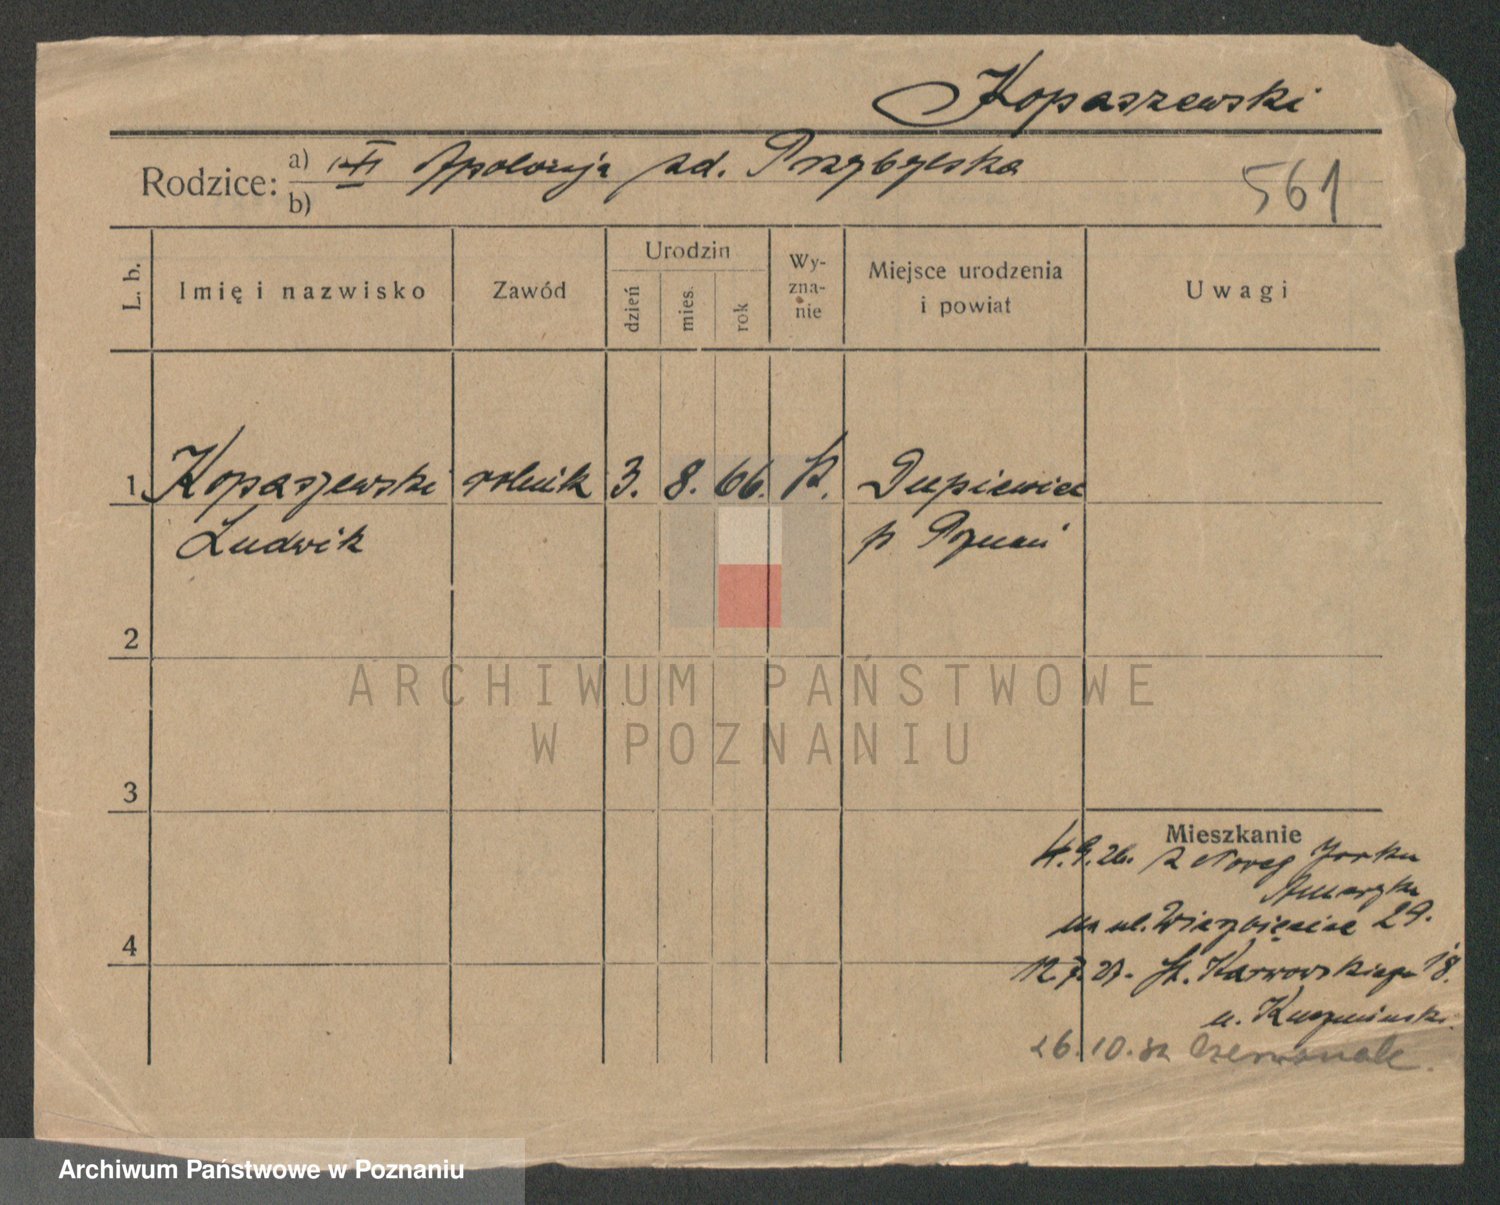 Kopaszewski
Rodzice: a) Apolonja zd. Przybylska
b)
561
L. b.
Imię i nazwisko
Zawód
Urodzin
dzień
mies.
rok
Wy-
zna-
nie
Miejsce urodzenia
i powiat
Uwagi
1 Kopaszewski rolnik 3. 8. 66. k. Dupiewiec
Ludwik p Poznań
2
3
4
Mieszkanie
4.9.26. z Noweg Jorku
Ameryka
na ul. Wierzbięcice 29.
12.7.27. Karwowskiego 18.
u. Kuzminski.
26.10.32 Czerwonak.
ARCHIWUM PAŃSTWOWE
W POZNANIU
Archiwum Państwowe w Poznaniu